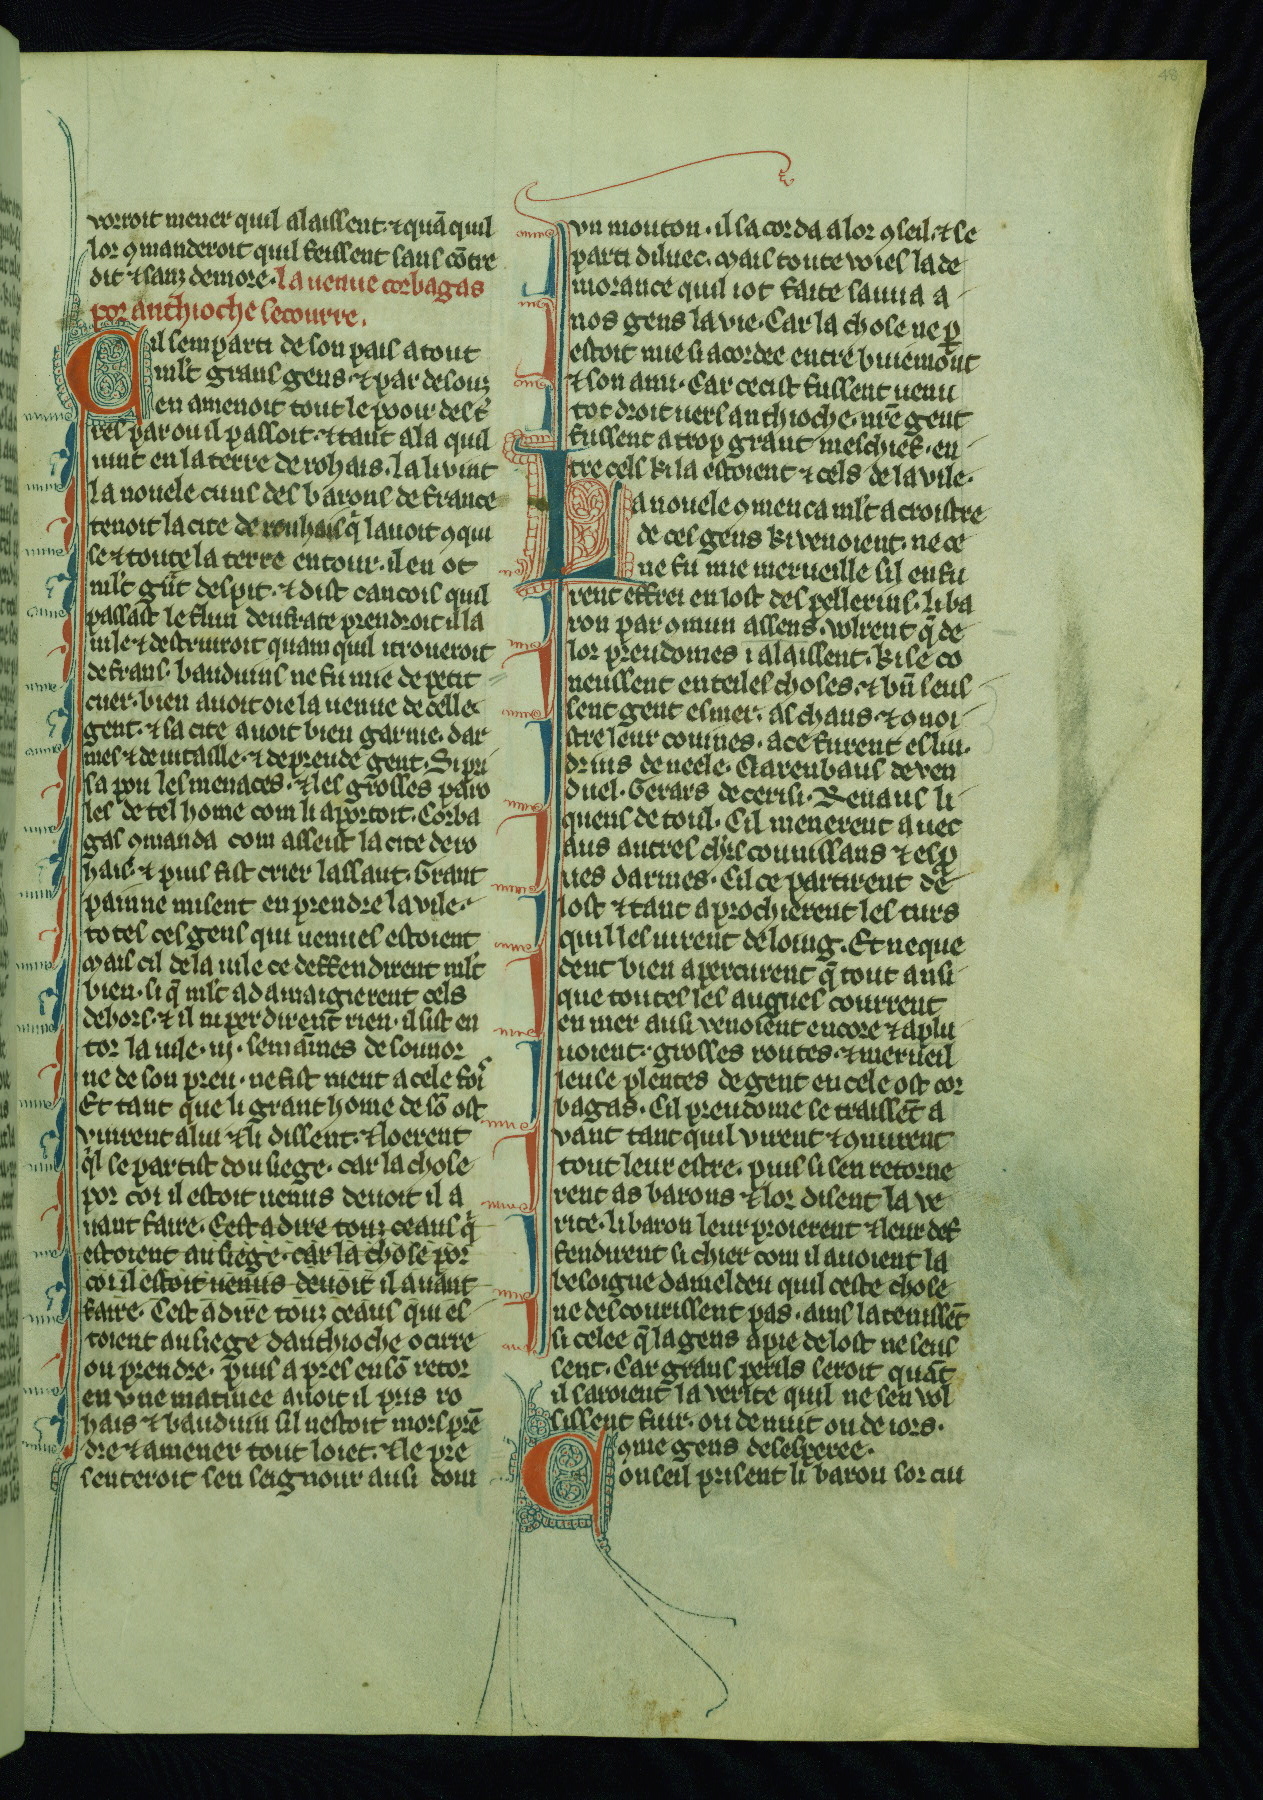 48
vorroit mener quil alaissent. ⁊ quā quil
lor ꝯmanderoit quil feissent sans cōtre
dit ⁊ sanz demore. la uenue corbagas
por anthioche secourre.
Cil semparti de son pais a tout
ml't grans gens. ⁊ par desouz
en amenoit tout le pooir des t'
res par ou il passoit. ⁊ tant ala quil
uint en la terre de rohais. la li vint
la nouele cuns des barons de france
tenoit la cite de rouhais q̄ lauoit ꝯqui
se ⁊ toute la terre entour. il en ot
ml't gn̄t despit. ⁊ dist cancois quil
passast le flun deufrate prendroit il la
uile ⁊ destruiroit quam quil i troueroit
de frans. bauduins ne fu mie de petit
cuer. bien auoit oie la uenue de celle
gent. ⁊ sa cite auoit bien garnie. dar
mes ⁊ de uitaille. ⁊ de preude gent. Si pri
sa pou les menaces. ⁊ les grosses paro
les de tel home com li aportoit. Corba
gas ꝯmanda com assent la cite de ro
hais. ⁊ puis fist crier lassaut. Grant
painne misent en prendre la vile.
totes ces gens qui uenues estoient
Mais cil de la uile ce deffendirent ml't
bien. si q̄ ml't adamaigierent cels
dehors. ⁊ il ni perdirent rien. il sist en
tor la uile .iij. semaines de sounor
ne de son preu. ne fist nient a cele foi
Et tant que li grant home de sō ost
vinrent a lui ⁊ li dissent. ⁊ loerent
q̄l se partist dou siege. car la chose
por coi il estoit uenus deuoit il a
uant faire. Cest a dire touz ceaus q̄
estoient au siege. car la chose por
coi il estoit uenus deuoit il auant
faire. Cest a dire touz ceaus qui es
toient au siege danthioche ocirre
ou prendre. puis apres en sō retor
en vne matinee auoit il pris ro
hais ⁊ bauduin sil nestoit mors prē
dre ⁊ amener tout loiet. ⁊ le pre
senteroit sen seignour ausi com
vn mouton. il sacorda a lor ꝯseil. ⁊ se
parti diluec. Mais toute voies la de
morance quil iot faite sauua a
nos gens la vie. Car la chose ne ꝑ
estoit mie si acordee entre buiemōut
⁊ son ami. Car ce cist fussent uenu
tot droit uers anthioche. nr̄e gent
fussent a trop grant meschief. en
tre cels ki la estoient ⁊ cels de la vile.
La nouele ꝯmenca ml't a croistre
de ces gens ki venoient. ne ce
ne fu mie merueille sil en fu
rent effrei en lost des pellerins. li ba
ron par ꝯmun assens. volrent q̄ de
lor preudomes i alaissent. ki se co
neussent en teiles choses. ⁊ bn̄ seus
sent gent esmer. as chans. ⁊ ꝯnoi
stre leur couines. a ce furent esliu.
drius de neele. Clarenbaus de ven
duel. Gerars de cerisi. Renaus li
quens de toul. Cil menerent auec
aus autres ch'rs connissans ⁊ esp
ues darmes. Cil ce partirent de
lost ⁊ tant aprochierent les turs
quil les uirent de loing. Et neque
dent bien apercurent q̄ tout ausi
que toutes les augues courrent
en mer ausi venoient encore ⁊ aplu
uoient. grosses routes. ⁊ merueil
leuse plentes de gent en cele ost cor
bagas. Cil preudome se traissēt a
vant tant quil virent ⁊ ꝯnurent
tout leur estre. puis si sen retorne
rent as barons ⁊ lor disent la ve
rite. li baron leur proierent ⁊ leur def
fendirent si chier com il auoient la
besoigne damelden quil ceste chose
ne descourissent pas. ains la tenissēt
si celee q̄ la gens a pie de lost ne seus
sent. Car grans perils seroit quāt
il saroient la verite quil ne sen vol
sissent fuir. ou de nuit ou de iors.
ꝯme gens desesperee.
Conseil prisent li baron sor ciu